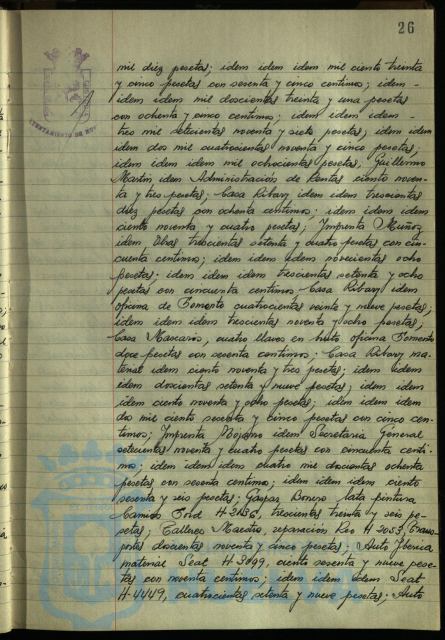 26
AYUNTAMIENTO DE
mil diez pesetas; idem idem idem mil ciento treinta
y cinco pesetas con sesenta y cinco centimos; idem -
idem idem mil doscientas treinta y una pesetas
con ochenta y cinco centimos; idem idem idem -
tres mil setecientas noventa y siete pesetas; idem idem
idem dos mil cuatrocientas noventa y cinco pesetas;
idem idem idem mil ochocientas pesetas; Guillermo
Martin idem Administración de Rentas ciento noven-
ta y tres pesetas; Casa Ribary idem idem trescientas
diez pesetas con ochenta centimos; idem idem idem
ciento noventa y cuatro pesetas; Imprenta Muñoz
idem Obras trescientas setenta y cuatro pesetas con cin-
cuenta centimos; idem idem idem novecientas ocho
pesetas; idem idem idem trescientas setenta y ocho
pesetas con cincuenta centimos Casa Ribary idem
oficina de Fomento cuatrocientas veinte y nueve pesetas;
idem idem idem trescientas noventa y ocho pesetas;
Casa Mascaros, cuatro llaves en bruto oficina Fomento
doce pesetas con sesenta centimos; Casa Ribary ma-
terial idem ciento noventa y tres pesetas; idem idem
idem doscientas setenta y nueve pesetas; idem idem
idem ciento noventa y ocho pesetas; idem idem idem
dos mil ciento sesenta y cinco pesetas con cinco cen-
timos; Imprenta Bojano idem Secretaria General
setecientas noventa y cuatro pesetas con cincuenta centi-
mos; idem idem idem cuatro mil doscientas ochenta
pesetas con sesenta centimos; idem idem idem ciento
sesenta y seis pesetas; Gaspar Bonero lata pintura
Camión Ford H-2136, trescientas treinta y seis pe-
setas; Talleres Maestro, reparación Reo H 2053, Trans-
portes doscientas noventa y cinco pesetas; Auto Iberica
material Seat H-3099, ciento sesenta y nueve pese-
tas con noventa centimos; idem idem idem Seat
H-4449, cuatrocientas setenta y nueve pesetas; Auto